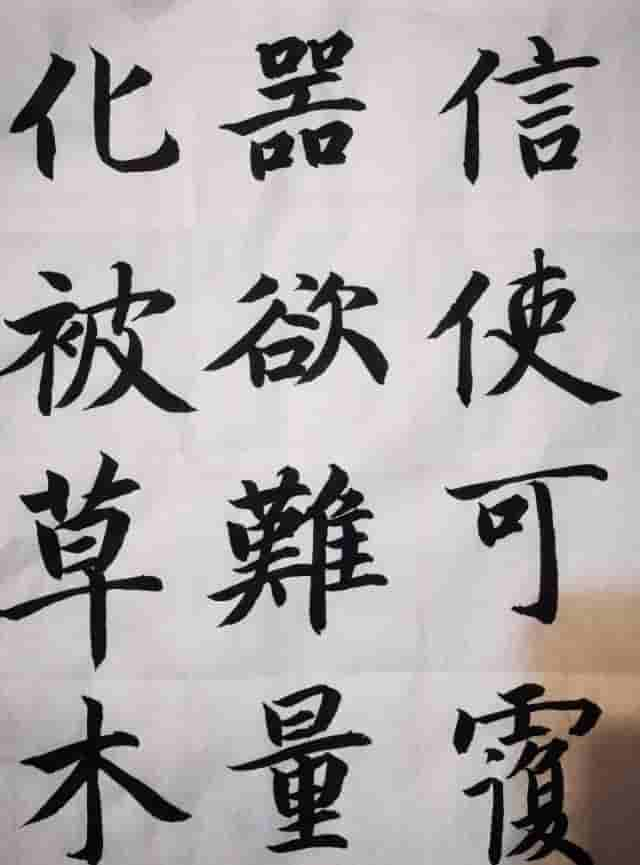 信使可覆
器欲難量
化被草木